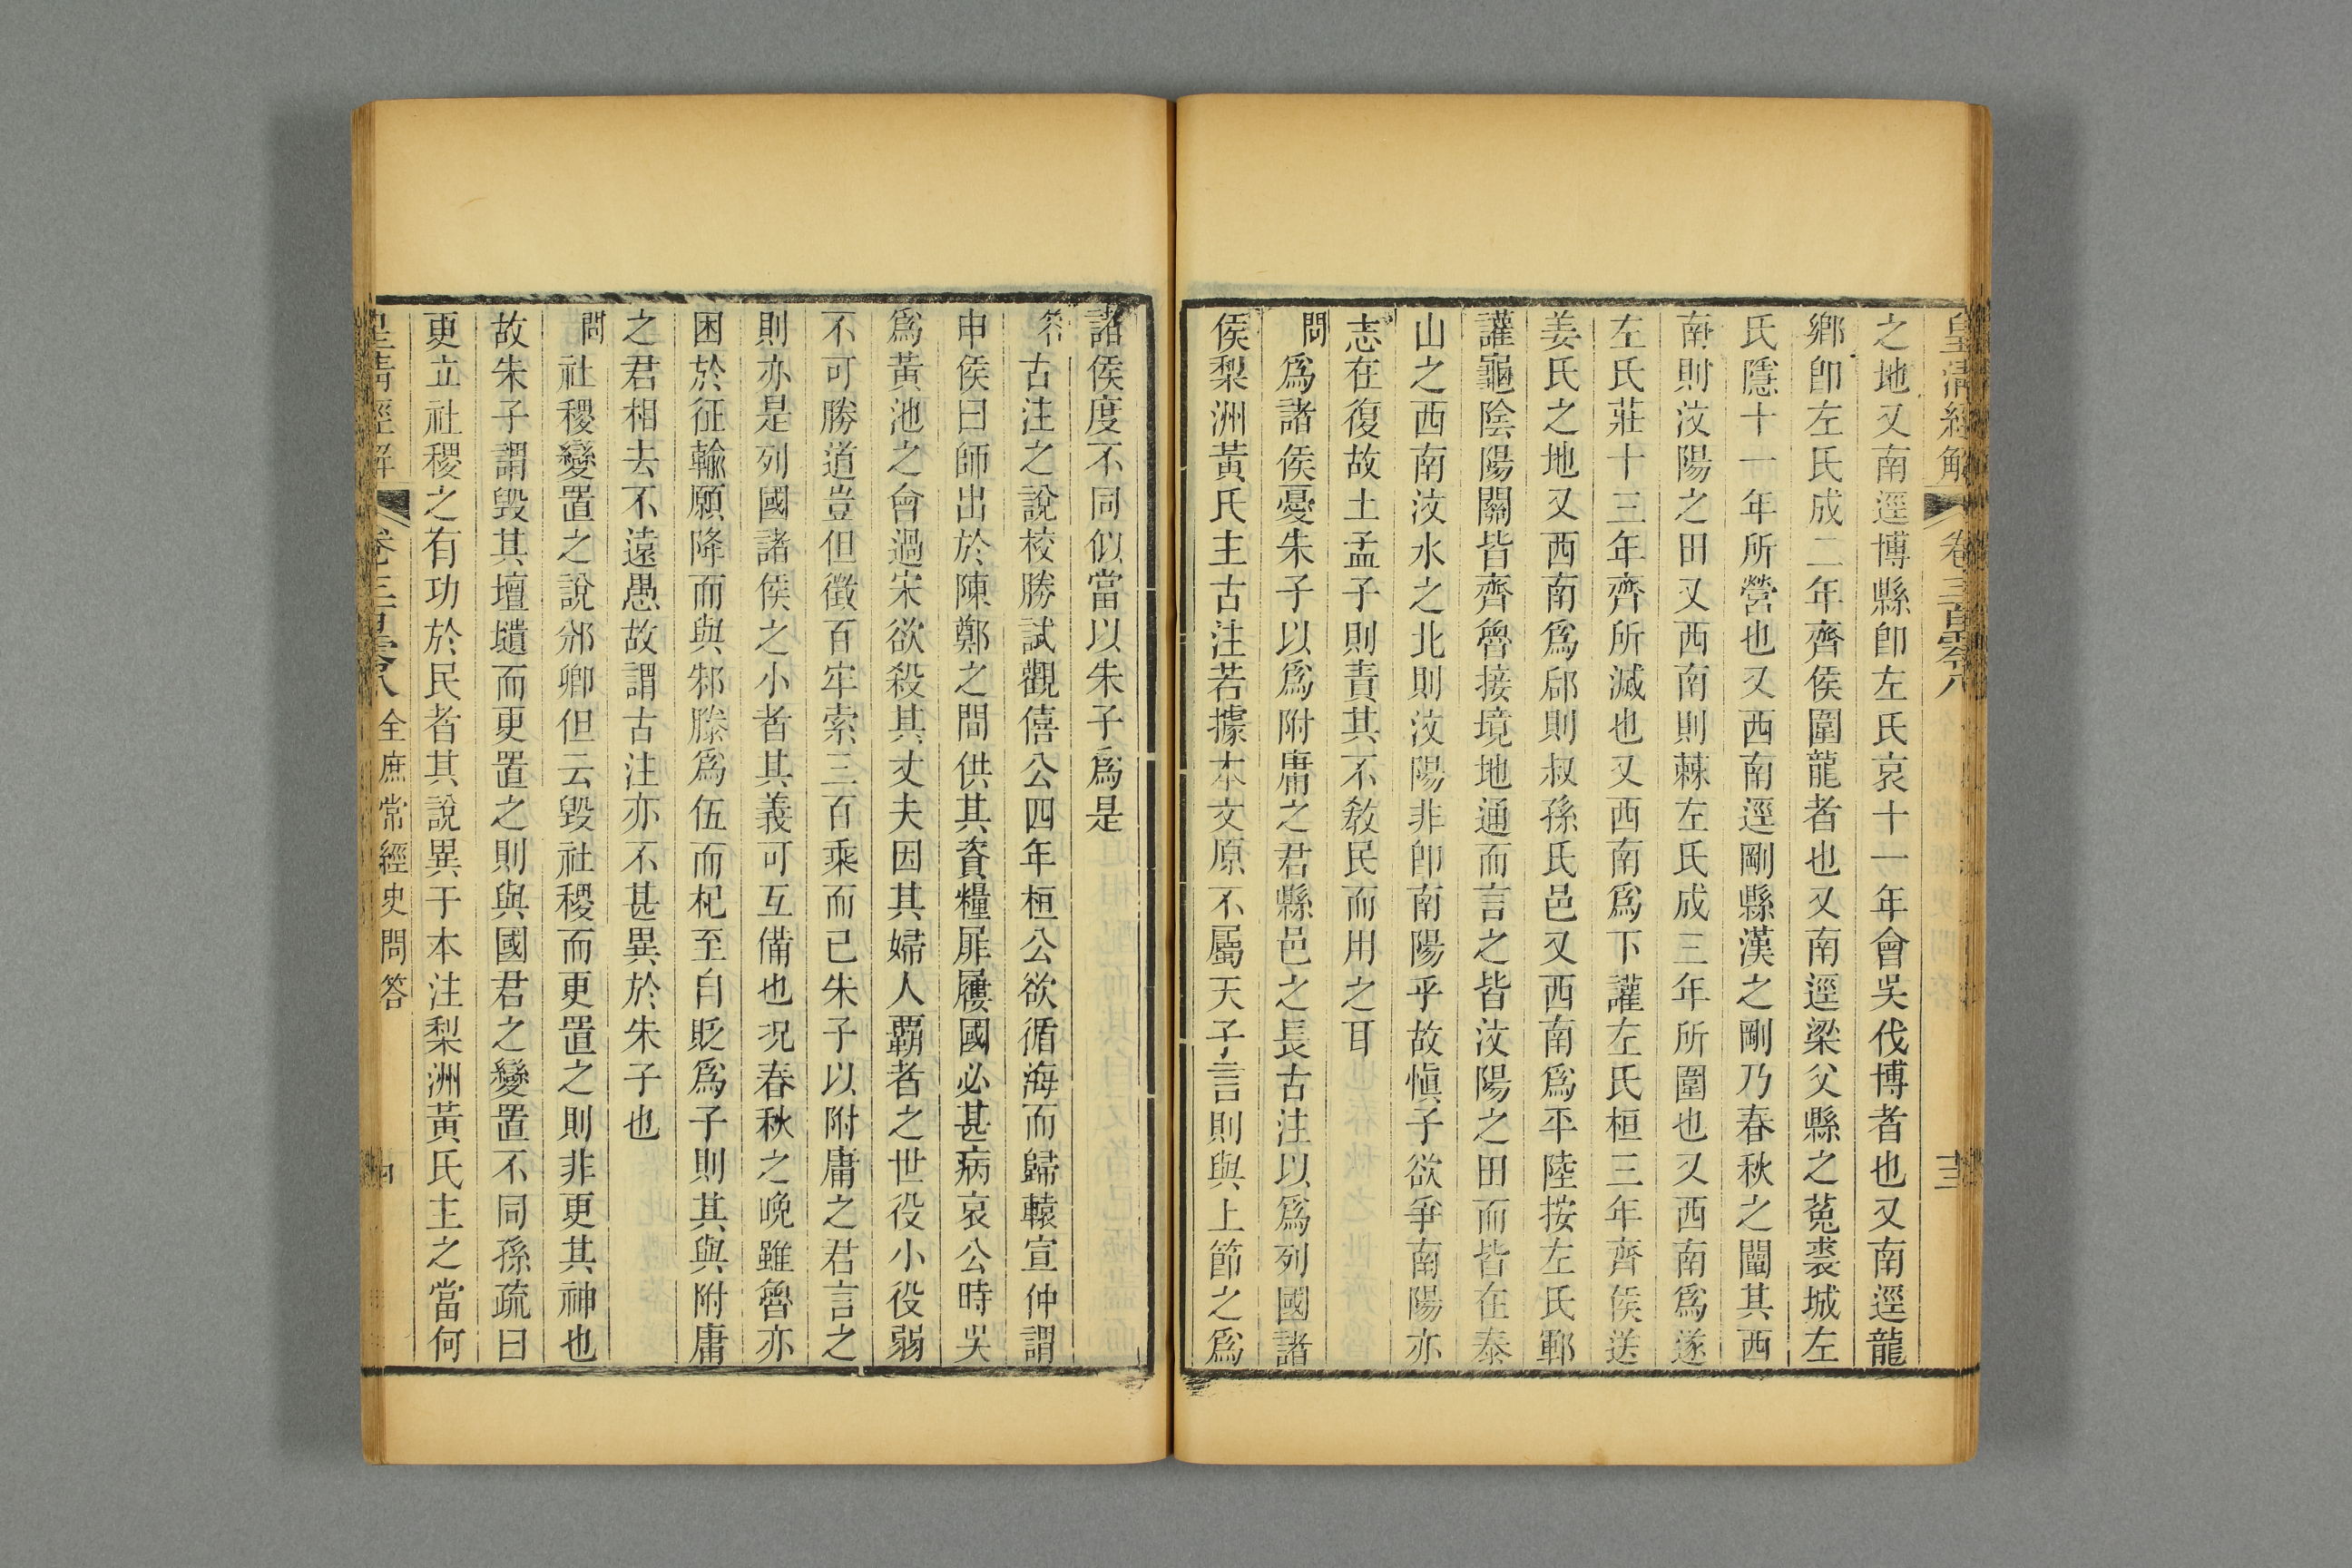 皇清經解 卷三百零八 十三
之地又南逕博縣卽左氏哀十一年會吳伐博者也又南逕龍
鄕卽左氏成二年齊侯圍龍者也又南逕梁父縣之菟裘城左
氏隱十一年所營也又西南逕剛縣漢之剛乃春秋之闡其西
南則汶陽之田又西南則棘左氏成三年所圍也又西南爲遂
左氏莊十三年齊所滅也又西南爲下讙左氏桓三年齊侯送
姜氏之地又西南爲郈則叔孫氏邑又西南爲平陸按左氏鄆
讙龜陰陽關皆齊魯接境地通而言之皆汶陽之田而皆在泰
山之西南汶水之北則汶陽非卽南陽乎故愼子欲爭南陽亦
志在復故土孟子則責其不敎民而用之耳
問爲諸侯憂朱子以爲附庸之君縣邑之長古注以爲列國諸
侯梨洲黃氏主古注若據本文原不屬天子言則與上節之爲
諸侯度不同似當以朱子爲是
答古注之說校勝試觀僖公四年桓公欲循海而歸轅宣仲謂
申侯曰師出於陳鄭之間供其資糧屝屨國必甚病哀公時吳
爲黃池之會過宋欲殺其丈夫因其婦人覇者之世役小役弱
不可勝道豈但徵百牢索三百乘而已朱子以附庸之君言之
則亦是列國諸侯之小者其義可互備也況春秋之晚雖魯亦
困於征輸願降而與邾滕爲伍而杞至自貶爲子則其與附庸
之君相去不遠愚故謂古注亦不甚異於朱子也
問社稷變置之說邠卿但云毀社稷而更置之則非更其神也
故朱子謂毀其壇壝而更置之則與國君之變置不同孫疏曰
更立社稷之有功於民者其說異于本注梨洲黃氏主之當何
皇清經解 卷三百零八 全庶常經史問答